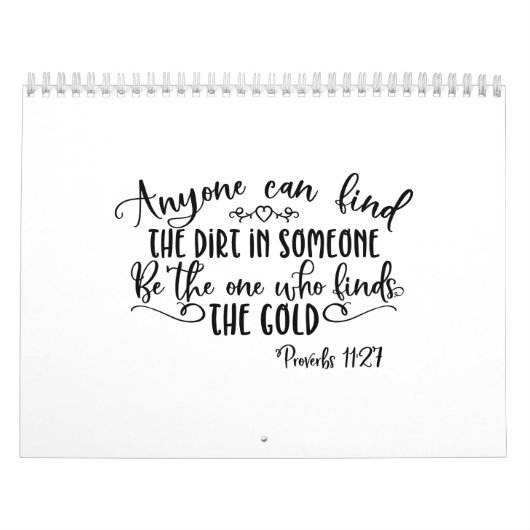 Anyone can find
THE DIRT IN SOMEONE
Be The one who finds
THE GOLD
Proverbs 11:27